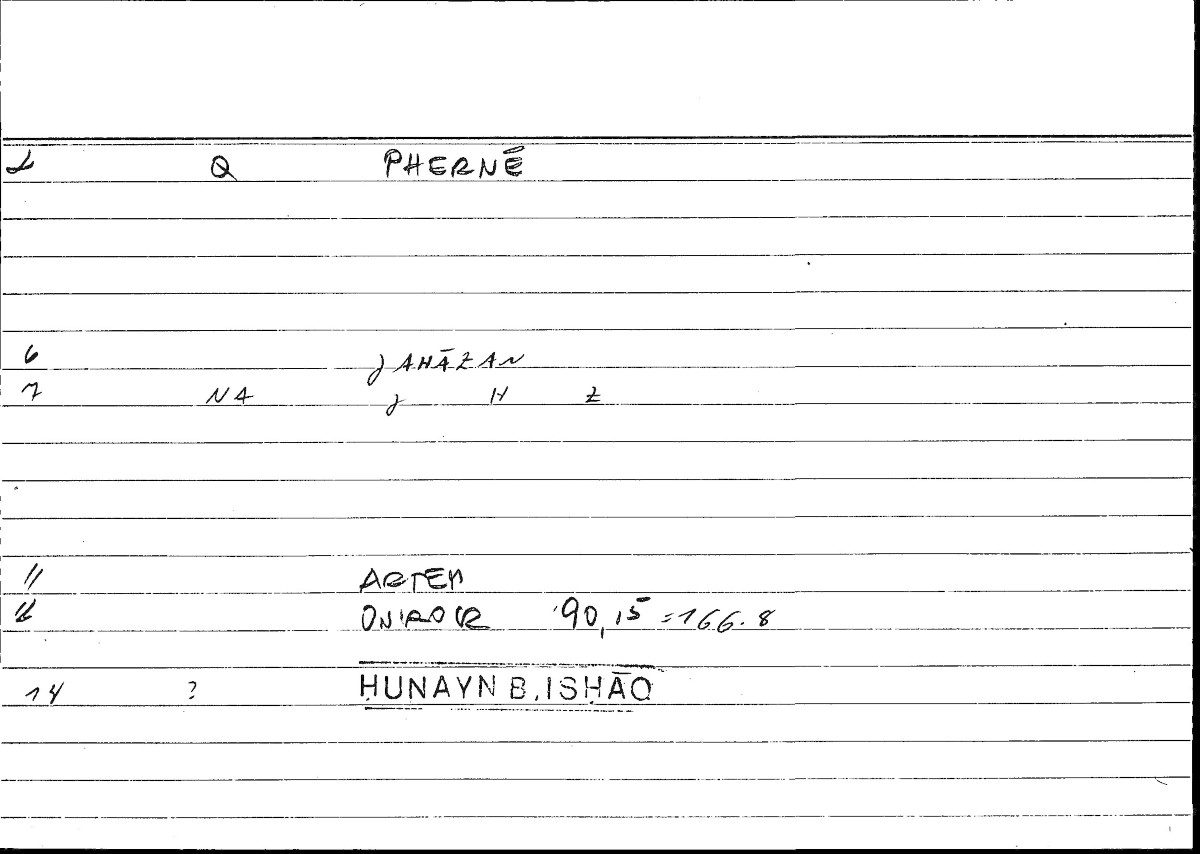 1 Q PHERNĒ
6 ǧAHĀZAN
7 N4 ǧ H Z
11 ARTEM
12 ONIROCR 90,15 = 166.8
14 ? ḤUNAYN B. ISḤĀQ